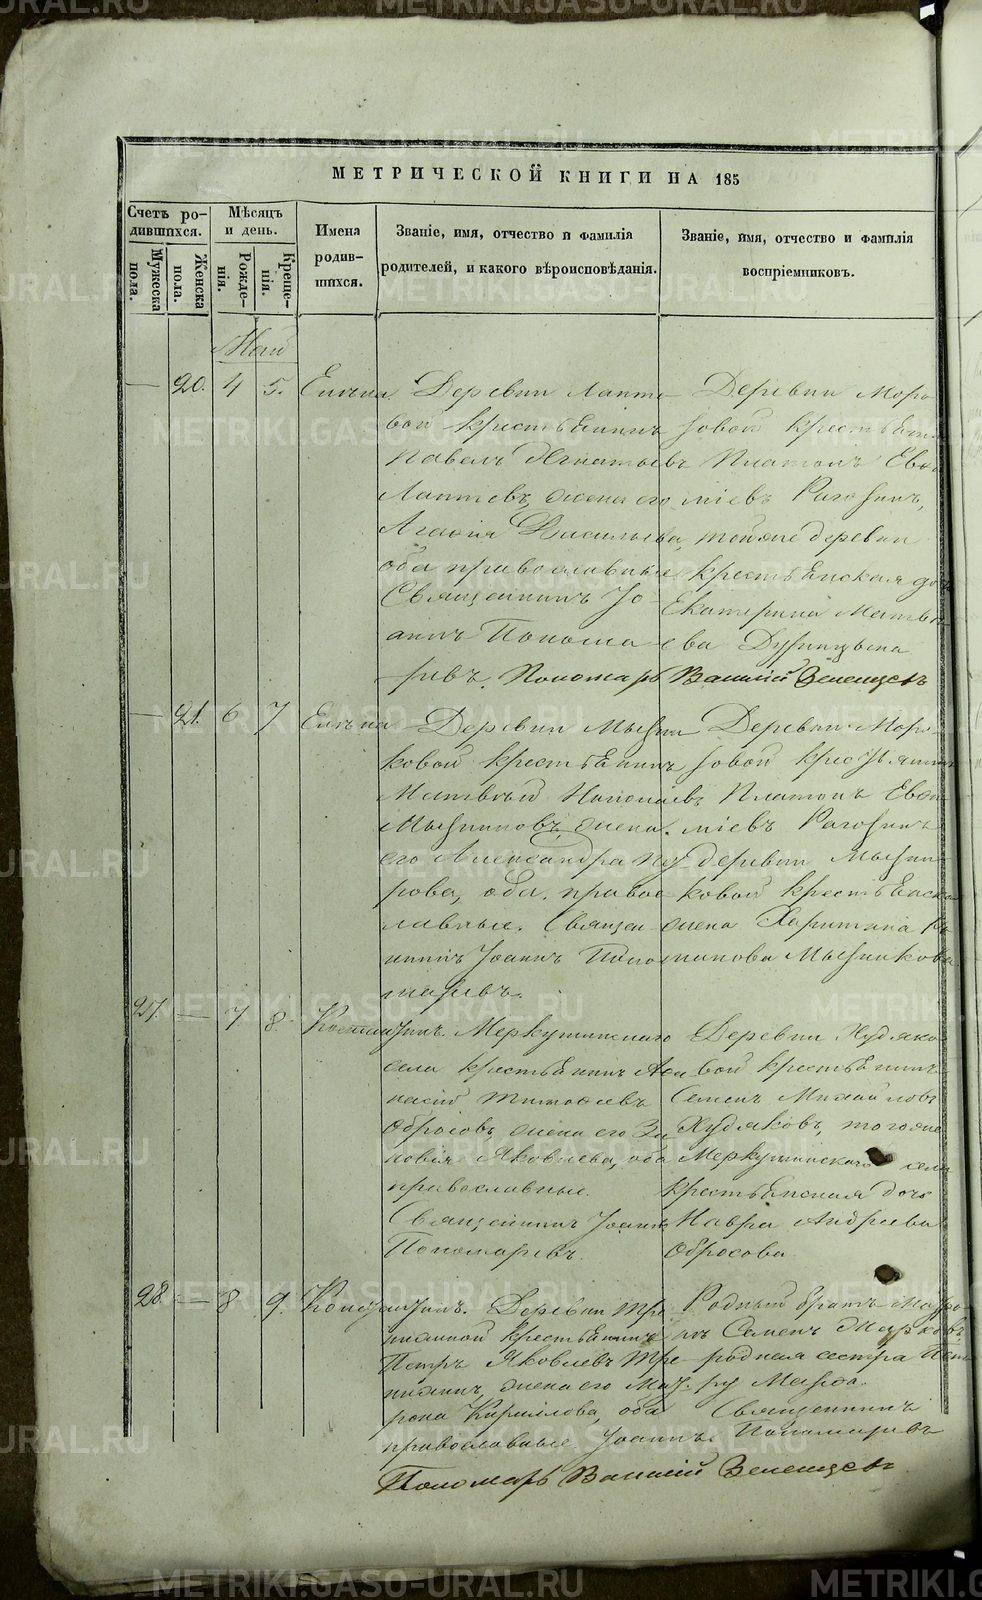 МЕТРИЧЕСКОЙ КНИГИ НА 185
Счетъ родившихся.
Мужеска пола.
Женска пола.
Мѣсяцъ и день.
Рожденія.
Крещенія.
Имена родившихся.
Званіе, имя, отчество и фамилія
родителей, и какого вѣроисповѣданія.
Званіе, имя, отчество и фамилія
воспріемниковъ.
Май
— 20. 4 5. Елена
Деревни Лапте-
вой крестьянинъ
Павелъ Игнатьевъ
Лаптевъ, жена его
Агафія Васильева,
оба православные
Священникъ Іо-
аннъ Понома-
ревъ. Пономарь Василій Зеленцевъ
Деревни Моро-
зовой крестьян.
Платонъ Евѳи
міевъ Рагозинъ,
тойже деревни
крестьянская дочь
Екатерина Матвѣ-
ева
— 21. 6 7 Елена
Деревни Мызни
ковой крестьянинъ
Матвѣй Николаевъ
Мызниковъ, жена
его Александра
рова, оба правос
лавные. Священ
никъ Іоаннъ Поно
маревъ.
Деревни Моро-
зовой крестьянинъ
Платонъ Евѳи
міевъ Рагозинъ
деревни Мызни
ковой крестьянска
жена Харитина
Мызникова
27. — 7 8. Константинъ.
Меркушинскаго
села крестьянинъ Аѳа
насій Тимоѳеевъ
Обросовъ, жена его Зи
новія Яковлева, оба
православные.
Священникъ Іоаннъ
Пономаревъ
Деревни Худяко
вой крестьянинъ
Семенъ Михайловъ
Худяковъ, тогоже
Меркушинскаго села
крестьянская дочь
Мавра Андреева
Обросова
28. — 8 9. Константинъ.
Деревни Тре
нихиной крестьянинъ
Петръ Яковлевъ Тре-
нихинъ, жена его Мат-
рона Кирилова, оба
православные
Родный братъ
Семенъ Марковъ,
родная сестра
Марѳа.
Священникъ
Іоаннъ Пономаревъ
Пономарь Василій Зеленцевъ
METRIKI.GASO-URAL.RU